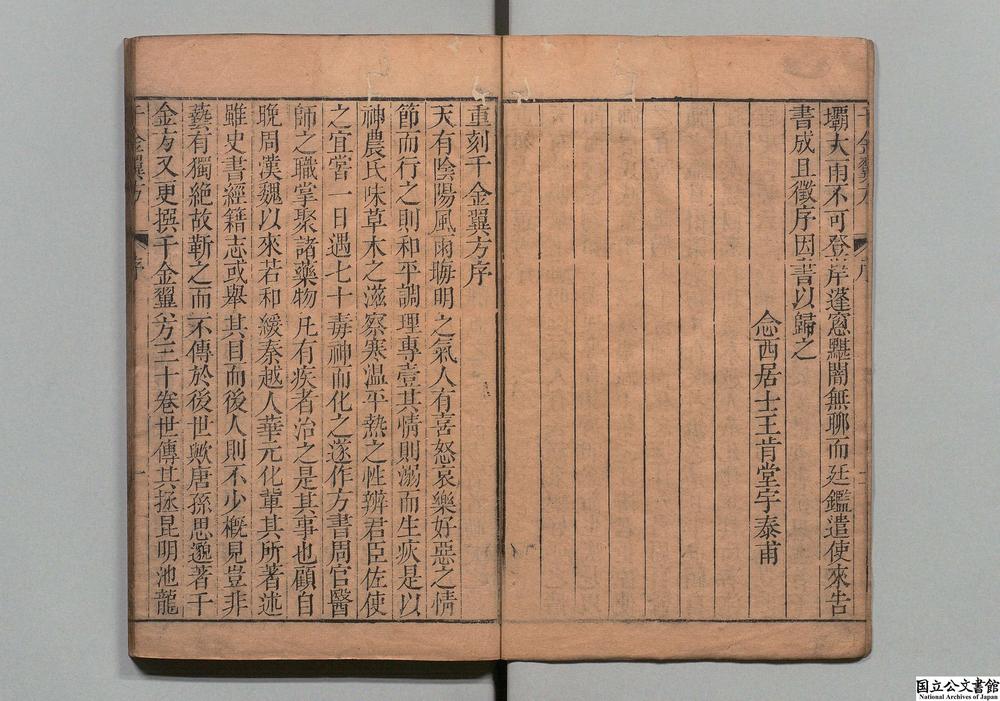 壩大雨不可登岸蓬窓黮闇無聊而廷鑑遣使來告
書成且徵序因書以歸之
念西居士王肯堂宇泰甫
重刻千金翼方序
天有陰陽風雨晦明之氣人有喜怒哀樂好惡之情
節而行之則和平調理專壹其情則溺而生疢是以
神農氏味草木之滋察寒温平熱之性辨君臣佐使
之宜甞一日遇七十毒神而化之遂作方書周官醫
師之職掌聚諸藥物凡有疾者治之是其事也顧自
晚周漢魏以來若和緩秦越人華元化軰其所著述
雖史書經籍志或舉其目而後人則不少概見豈非
藝有獨絶故靳之而不傳於後世歟唐孫思邈著千
金方又更撰千金翼方三十卷世傳其拯昆明池龍
千金翼方
序
一
国立公文書館
National Archives of Japan